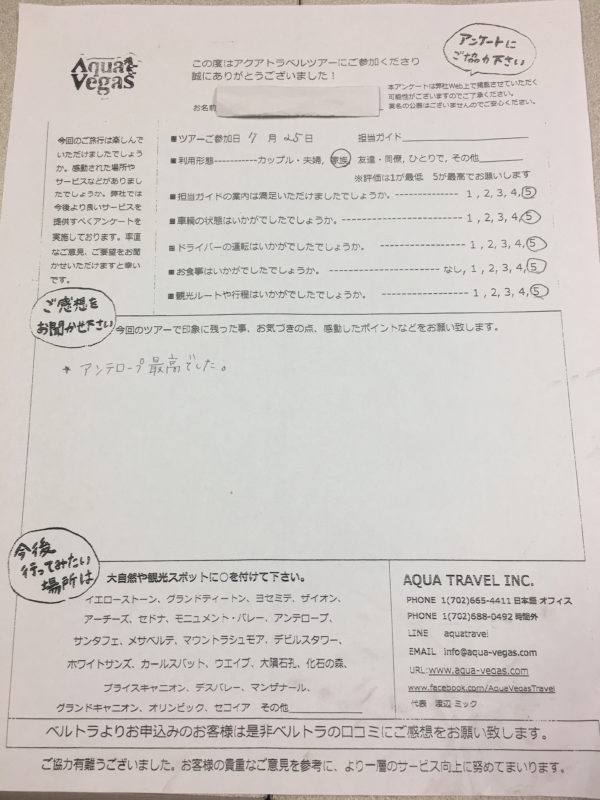 Aqua Vegas
この度はアクアトラベルツアーにご参加くださり
誠にありがとうございました！
アンケートに
ご協力下さい
本アンケートは弊社Web上で掲載させていただく
可能性がございますのでご了承ください。
実名の公表はございませんのでご安心ください。
お名前
今回のご旅行は楽しんで
いただけましたでしょう
か。感動された場所や
サービスなどがありまし
たでしょうか。弊社では
今後より良いサービスを
提供すべくアンケートを
実施しております。率直
なご意見、ご要望をお聞
かせいただけますと幸い
です。
■ツアーご参加日 7 月 25 日 担当ガイド
■利用形態-----------カップル・夫婦, 家族, 友達・同僚, ひとりで, その他
※評価は1が最低 5が最高でお願いします
■担当ガイドの案内は満足いただけましたでしょうか。--------------- 1 , 2, 3, 4, 5
■車輌の状態はいかがでしたでしょうか。----------------------- 1 , 2, 3, 4, 5
■ドライバーの運転はいかがでしたでしょうか。 ------------------ 1 , 2, 3, 4, 5
■お食事はいかがでしたでしょうか。 ---------------------- なし, 1 , 2, 3, 4, 5
■観光ルートや行程はいかがでしたでしょうか。 ------------------- 1 , 2, 3, 4, 5
ご感想を
お聞かせ下さい
今回のツアーで印象に残った事、お気づきの点、感動したポイントなどをお願い致します。
* アンテロープ最高でした。
今後
行ってみたい
場所は
大自然や観光スポットに○を付けて下さい。
イエローストーン、グランドティートン、ヨセミテ、ザイオン、
アーチーズ、セドナ、モニュメント・バレー、アンテロープ、
サンタフェ、メサベルテ、マウントラシュモア、デビルスタワー、
ホワイトサンズ、カールスバット、ウエイブ、大隕石孔、化石の森、
ブライスキャニオン、デスバレー、マンザナール、
グランドキャニオン、オリンピック、セコイア その他
AQUA TRAVEL INC.
PHONE 1(702)665-4411 日本語 オフィス
PHONE 1(702)688-0492 時間外
LINE aquatravel
EMAIL info@aqua-vegas.com
URL:www.aqua-vegas.com
www.facebook.com/AquaVegasTravel
代表 渡辺 ミック
ベルトラよりお申込みのお客様は是非ベルトラの口コミにご感想をお願い致します。
ご協力有難うございました。お客様の貴重なご意見を参考に、より一層のサービス向上に努めてまいります。